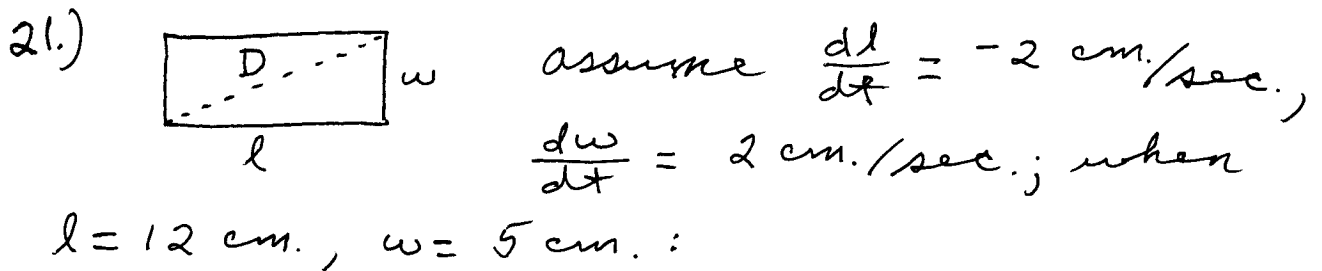 21.) D w assume dl/dt = -2 cm./sec.,
l dw/dt = 2 cm./sec.; when
l = 12 cm., w = 5 cm. :